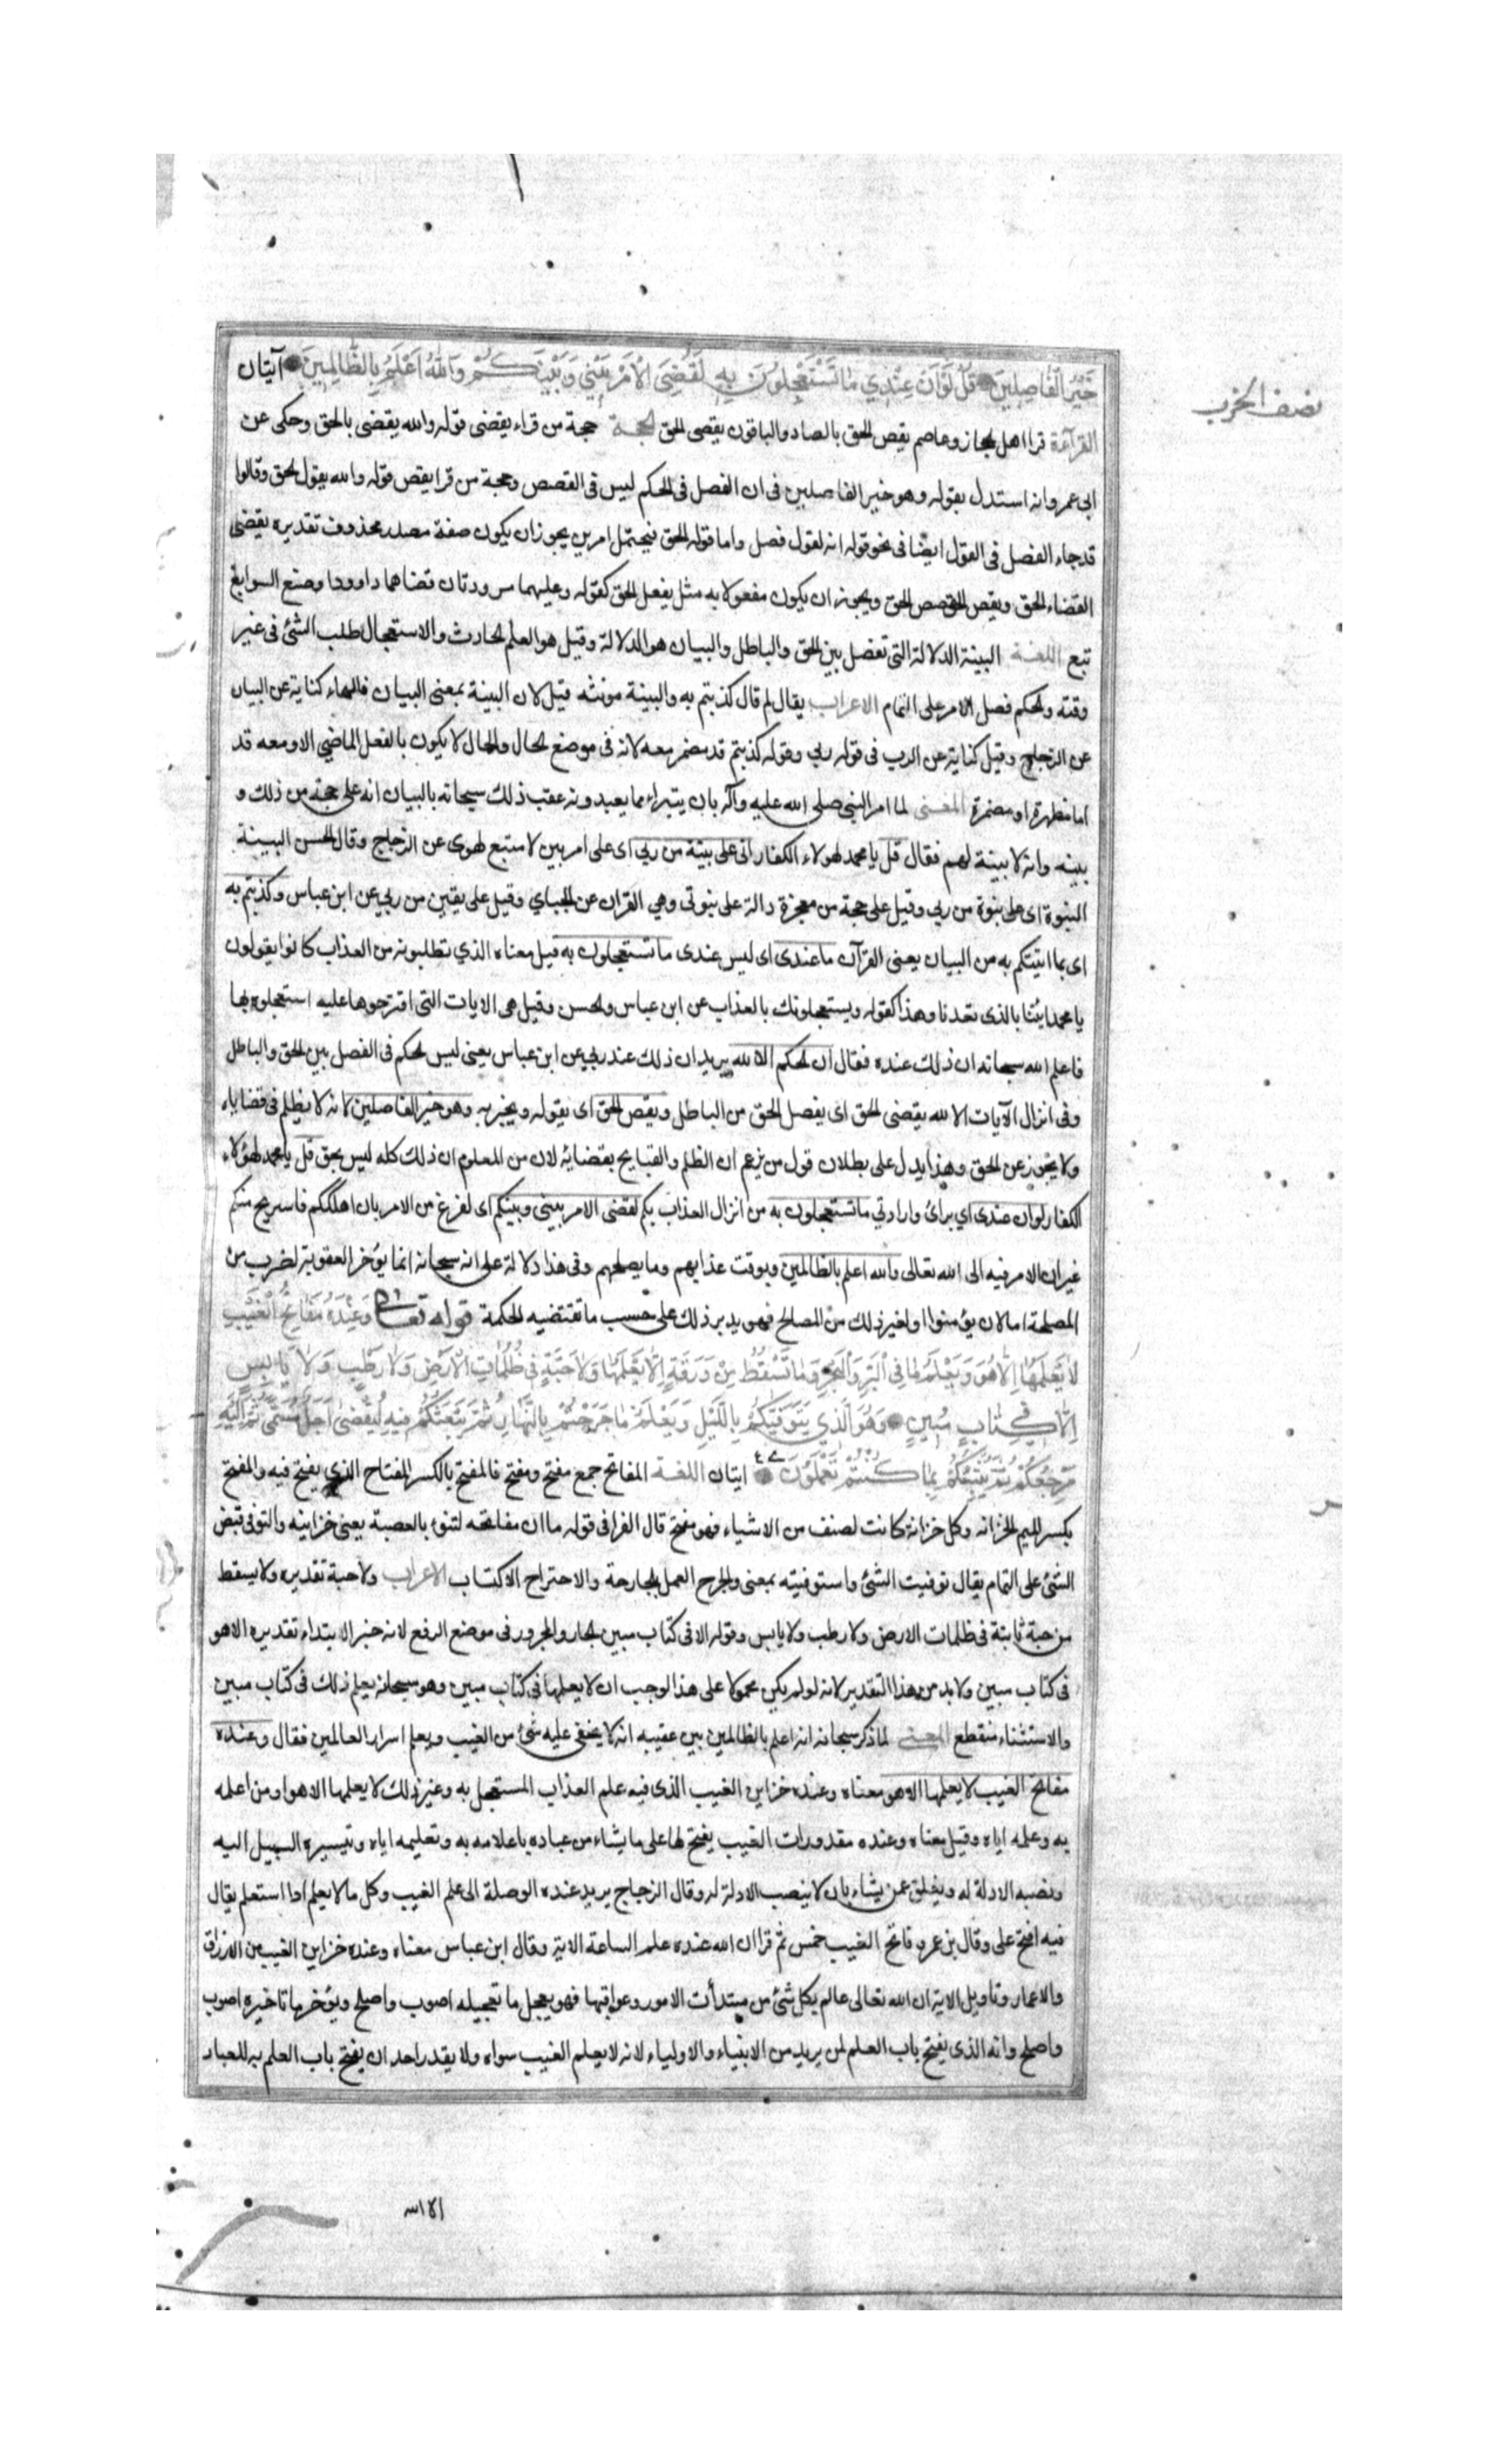 نصف الحزب
خَيْرُ الْفَاصِلِينَ قُلْ لَوْ اَنَّ عِنْدِي مَا تَسْتَعْجِلُونَ بِهِ لَقُضِيَ الْاَمْرُ بَيْنِي وَبَيْنَكُمْ وَاللهُ اَعْلَمُ بِالظَّالِمِينَ آيتان
القراءة قرا اهل الحجاز وعاصم يقص الحق بالصاد والباقون يقضى الحق الحجة حجة من قراء يقضى قوله والله يقضى بالحق وحكى عن
ابى عمرو انه استدل بقوله وهو خير الفاصلين فى ان الفصل فى الحكم ليس فى القصص وحجة من قرا يقص قوله والله يقول الحق وقالوا
قد جاء الفصل فى القول ايضا فى نحو قوله انه لقول فصل واما قوله الحق فيحتمل امرين يجوز ان يكون صفة مصدر محذوف تقديره يقضى
القضاء الحق ويقص القصص الحق ويجوز ان يكون مفعولا به مثل يفعل الحق كقوله وعليهما مسرودتان قضاهما داود وصنع السوابغ
تبع اللغة البينة الدلالة التى تفصل بين الحق والباطل والبيان هو الدلالة وقيل هو العلم الحادث والاستعجال طلب الشئ فى غير
وقته والحكم فصل الامر على التمام الاعراب يقال لم قال كذبتم به والبينة مونثه قيل لان البينة بمعنى البيان فالهاء كناية عن البيان
عن الزجاج وقيل كناية عن الرب فى قوله ربي وقوله كذبتم قد مضمر معه لانه فى موضع الحال والحال لا يكون بالفعل الماضي الا ومعه قد
اما مظهرة او مضمرة المعنى لما امر النبى صلى الله عليه وآله بان يتبراء مما يعبدونه عقب ذلك سبحانه بالبيان انه على حجة من ذلك و
بينه وانه لا بينة لهم فقال قل يا محمد لهولاء الكفار انى على بينة من ربي اى على امر بين لا متبع لهوى عن الزجاج وقال الحسن البينة
النبوة اى على نبوة من ربي وقيل على حجة من معجزة دالة على نبوتى وهي القران عن الجباي وقيل على يقين من ربي عن ابن عباس وكذبتم به
اى بما اتيتكم به من البيان يعنى القرآن ما عندى اى ليس عندى ما تستعجلون به قيل معناه الذي تطلبونه من العذاب كانوا يقولون
يا محمد ايتنا بالذى تعدنا وهذا كقوله ويستعجلونك بالعذاب عن ابن عباس والحسن وقيل هى الايات التى اقترحوها عليه استعجلوه بها
فاعلم الله سبحانه ان ذلك عنده فقال ان الحكم الا لله يريد ان ذلك عند ربي عن ابن عباس يعنى ليس الحكم فى الفصل بين الحق والباطل
وفى انزال الآيات الا لله يقضى الحق اى يفصل الحق من الباطل ويقص الحق اى يقوله ويخبر به وهو خير الفاصلين لانه لا يظلم فى قضاياه
ولا يجوز عن الحق وهذا يدل على بطلان قول من يزعم ان الظلم والقبايح بقضائه لان من المعلوم ان ذلك كله ليس بحق قل يا محمد لهؤلاء
الكفار لو ان عندى اي براى وارادتي ما تستعجلون به من انزال العذاب بكم لقضى الامر بيني وبينكم اى لفرغ من الامر بان اهلككم فاستريح منكم
غير ان الامر فيه الى الله تعالى والله اعلم بالظالمين وبوقت عذابهم وما يصلحهم وفى هذا دلالة على انه سبحانه انما يؤخر العقوبة لضرب من
المصلحة اما لان يؤمنوا او لغير ذلك من المصالح فهو يدبر ذلك على حسب ما تقتضيه الحكمة قوله تعالى وَعِنْدَهُ مَفَاتِحُ الْغَيْبِ
لَا يَعْلَمُهَا اِلَّا هُوَ وَيَعْلَمُ مَا فِي الْبَرِّ وَالْبَحْرِ وَمَا تَسْقُطُ مِنْ وَرَقَةٍ اِلَّا يَعْلَمُهَا وَلَا حَبَّةٍ فِي ظُلُمَاتِ الْاَرْضِ وَلَا رَطْبٍ وَلَا يَابِسٍ
اِلَّا فِي كِتَابٍ مُبِينٍ وَهُوَ الَّذِي يَتَوَفَّيكُمْ بِاللَّيْلِ وَيَعْلَمُ مَا جَرَحْتُمْ بِالنَّهَارِ ثُمَّ يَبْعَثُكُمْ فِيهِ لِيُقْضَى اَجَلٌ مُسَمًّى ثُمَّ اِلَيْهِ
مَرْجِعُكُمْ ثُمَّ يُنَبِّئُكُمْ بِمَا كُنْتُمْ تَعْمَلُونَ ايتان اللغة المفاتح جمع مفتح ومفتح فالمفتح بالكسر المفتاح الذي يفتح فيه والمفتح
بكسر الميم الخزانه وكل خزانة كانت لصنف من الاشياء فهو مفتح قال الفرا فى قوله ما ان مفاتحه لتنوء بالعصبة يعنى خزاينه والتوفى قبض
الشئ على التمام يقال توفيت الشئ واستوفيته بمعنى والجرح العمل بالجارحة والاجتراح الاكتساب الاعراب ولا حبة تقديره ولا يسقط
من حبة ثابتة فى ظلمات الارض ولا رطب ولا يابس وقوله الا فى كتاب مبين الجار والمجرور فى موضع الرفع لانه خبر الابتداء تقديره الا هو
فى كتاب مبين ولا بد من هذا التقدير لانه لو لم يكن محمولا على هذا لوجب ان لا يعلمها فى كتاب مبين وهو سبحانه يعلم ذلك فى كتاب مبين
والاستثناء منقطع المعنى لما ذكر سبحانه انه اعلم بالظالمين بين عقيبه انه لا يخفى عليه شئ من الغيب ويعلم اسرار العالمين فقال وعنده
مفاتح الغيب لا يعلمها الا هو معناه وعنده خزاين الغيب الذى فيه علم العذاب المستعجل به وغير ذلك لا يعلمها الا هو او من اعلمه
به وعلمه اياه وقيل معناه وعنده مقدورات الغيب يفتح لها على ما يشاء من عباده باعلامه به وتعليمه اياه وتيسيره السبيل اليه
ونصبه الادلة له ويغلق عمن يشاء بان لا ينصب الادلة له وقال الزجاج يريد عنده الوصلة الى علم الغيب وكل ما لا يعلم اذا استعلم يقال
فيه افتح على وقال بن عمر مفاتح الغيب خمس ثم قرا ان الله عنده علم الساعة الاية وقال ابن عباس معناه وعنده خزاين الغيب من الارزاق
والاعمار وتاويل الاية ان الله تعالى عالم بكل شئ من مبتدأت الامور وعواقبها فهو يعجل ما تعجيله اصوب واصلح ويؤخر ما تاخيره اصوب
واصلح وانه الذى يفتح باب العلم لمن يريد من الانبياء والاولياء لانه لا يعلم الغيب سواه ولا يقدر احد ان يفتح باب العلم به للعباد
الا الله